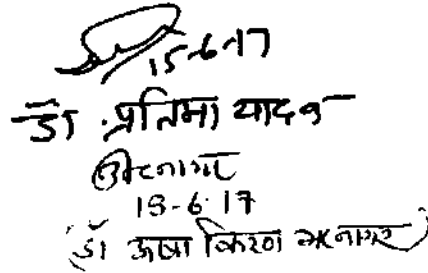 15-6-17
डॉ. प्रतिमा यादव
भटनागर
19-6-17
(डॉ ऊषा किरण भटनागर)